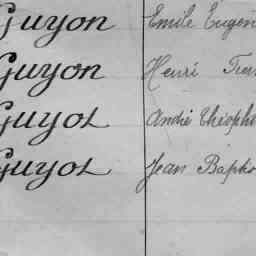 Guyon Emile Eugèn
Guyon Henri
Guyot André Théoph
Guyot Jean Baptis